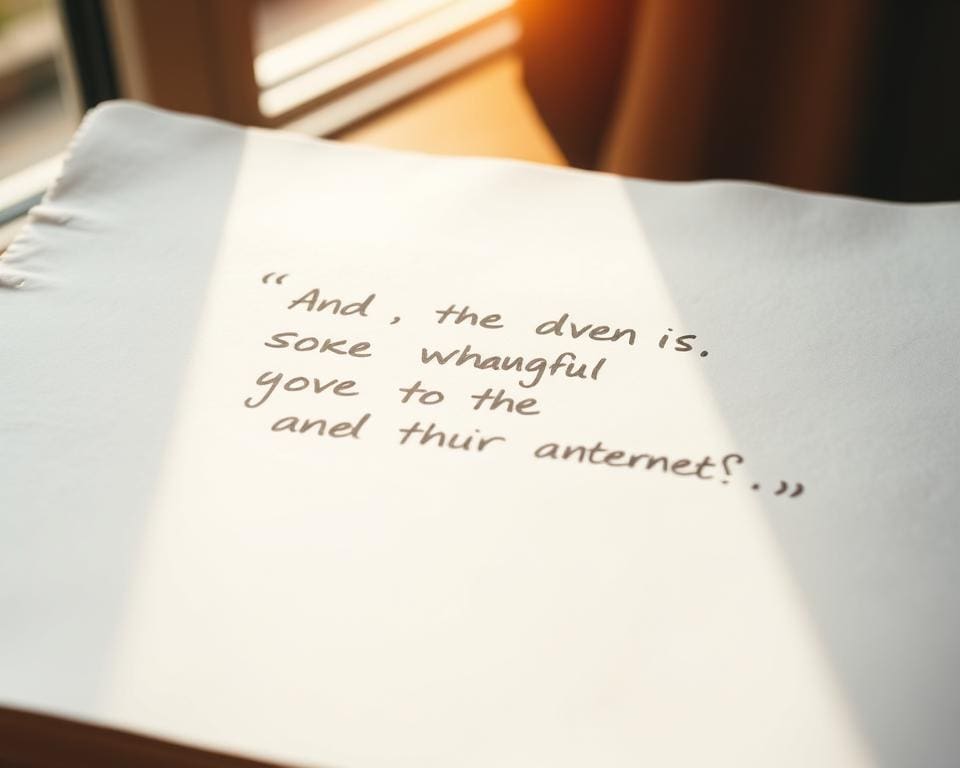 “And , the dven is.
soke whangful
yove to the
anel thuir anternet?.”